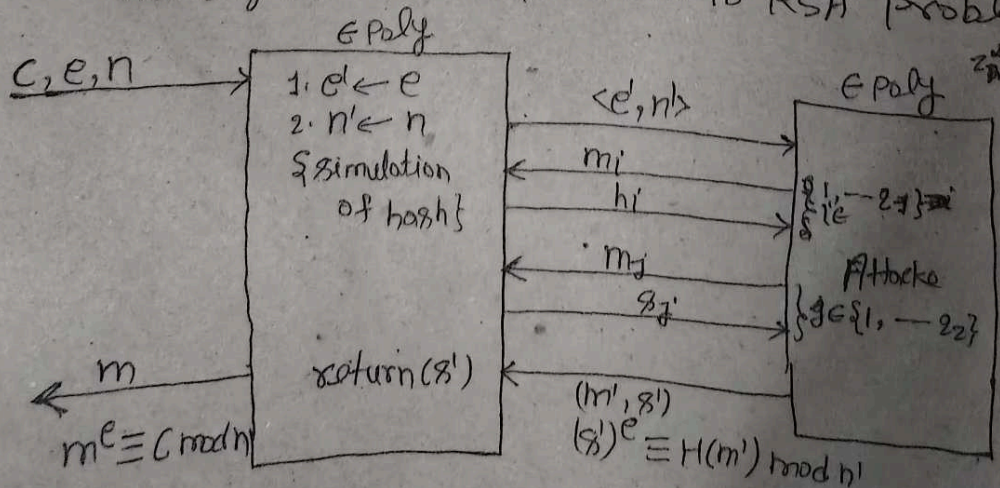 to RSA Probl
∈ Poly
C, e, n
1. e' ← e
2. n' ← n
{simulation
of hash}
return (s')
m
m^e ≡ C mod n
<e', n'>
mi
hi
mj
sj
(m', s')
(s')^e ≡ H(m') mod n'
∈ Poly
Attacke
} j ∈ {1, --- q2}